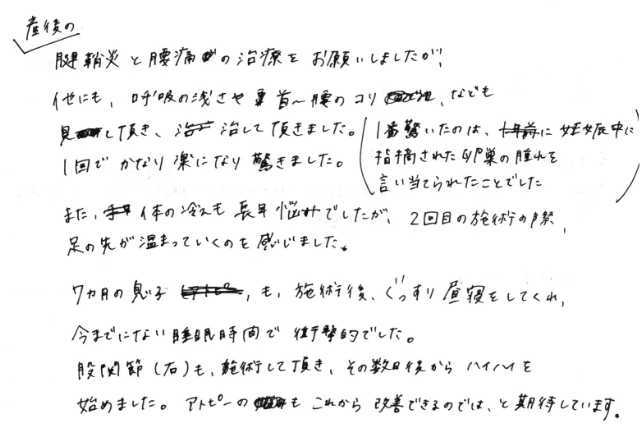 産後の
腱鞘炎と腰痛の治療をお願いしましたが、
他にも、呼吸の浅さや首〜腰のコリ、なども
見て頂き、治して頂きました。
1回でかなり楽になり驚きました。
(1番驚いたのは、十年前に妊娠中に
指摘された卵巣の腫れを
言い当てられたことでした)
また、体の冷えも長年悩みでしたが、2回目の施術の際、
足の先が温まっていくのを感じました。
7カ月の息子も、施術後、ぐっすり昼寝をしてくれ、
今までにない睡眠時間で衝撃的でした。
股関節(右)も、施術して頂き、その数日後からハイハイを
始めました。アトピーのもこれから改善できるのでは、と期待しています。